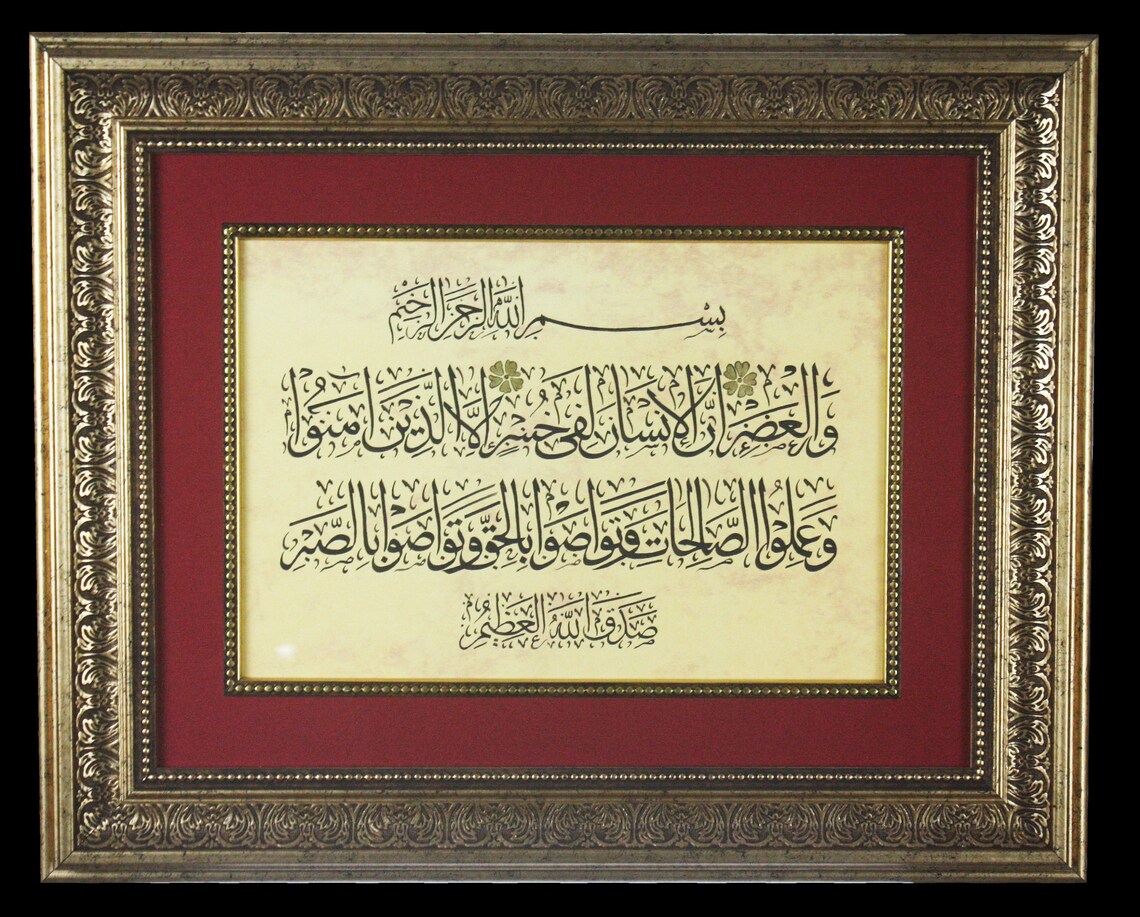 بسم الله الرحمن الرحيم
والعصر ان الانسان لفى خسر الا الذين امنوا
وعملوا الصالحات وتواصوا بالحق وتواصوا بالصبر
صدق الله العظيم